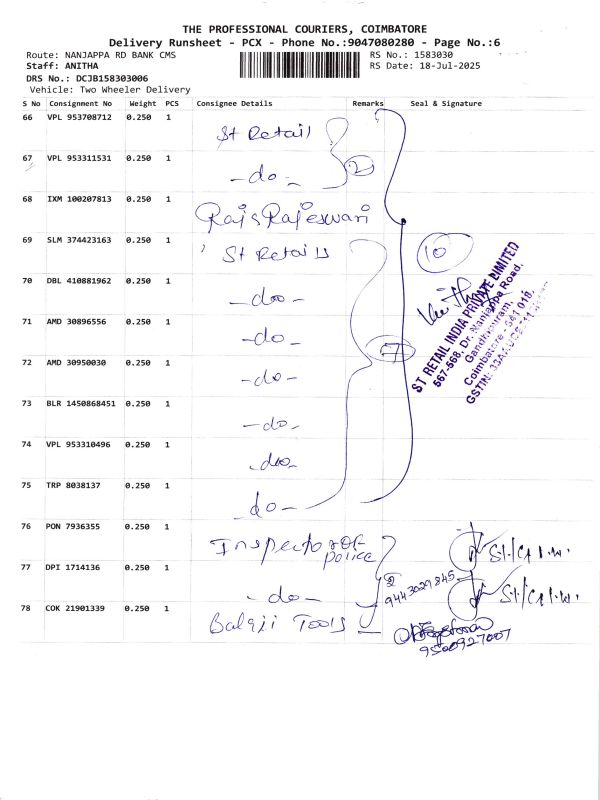 THE PROFESSIONAL COURIERS, COIMBATORE
Delivery Runsheet - PCX - Phone No.:9047080280 - Page No.:6
Route: NANJAPPA RD BANK CMS
RS No.: 1583030
Staff: ANITHA
RS Date: 18-Jul-2025
DRS No.: DCJB158303006
Vehicle: Two Wheeler Delivery
S No Consignment No Weight PCS Consignee Details Remarks Seal & Signature
66 VPL 953708712 0.250 1 St Retail
67 VPL 953311531 0.250 1 -do- 2
68 IXM 100207813 0.250 1 RajsRajeswari
69 SLM 374423163 0.250 1 St Retails 10
70 DBL 410881962 0.250 1 -doo-
71 AMD 30896556 0.250 1 -do- 7
72 AMD 30950030 0.250 1 -do-
73 BLR 1450868451 0.250 1 -do-
74 VPL 953310496 0.250 1 -do-
75 TRP 8038137 0.250 1 -do-
ST RETAIL INDIA PRIVATE LIMITED
567-568, Dr. Nanjappa Road,
Gandhipuram,
Coimbatore - 641 018,
GSTIN:
76 PON 7936355 0.250 1 Inspector OF Police
77 DPI 1714136 0.250 1 -do- 9443029845
78 COK 21901339 0.250 1 Balaji Tools
9500927007